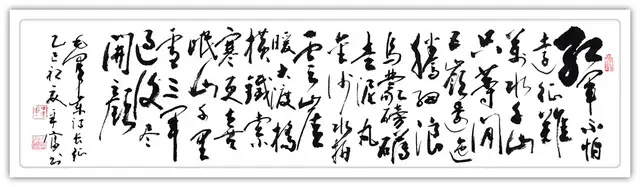 红军不怕
远征難
萬水千山
只等闲
五嶺逶迤
腾细浪
烏蒙磅礴
走泥丸
金沙水拍
雲崖
暖大渡橋
横鐵索
寒更喜
岷山千里
雪三军
过后尽
開顔
毛泽东诗长征
乙巳初夏